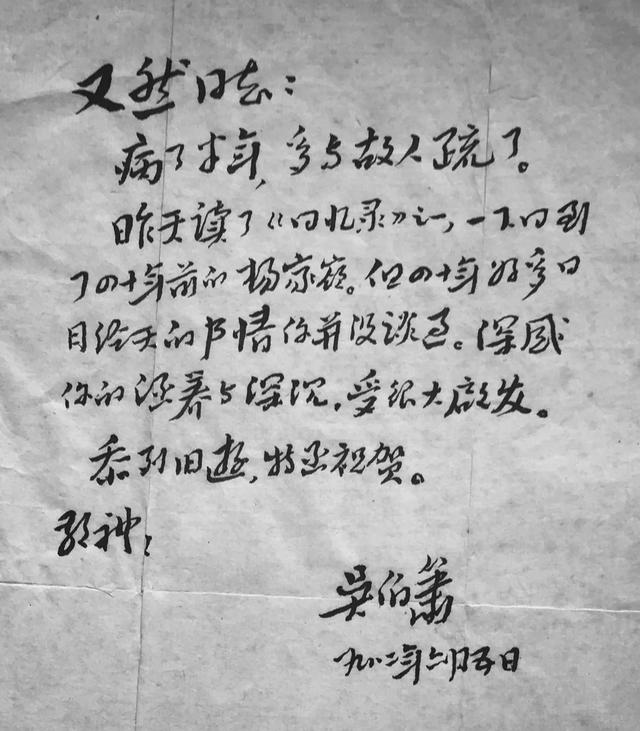 又然同志:
病了半年,多与故人疏了。
昨天读了《回忆录》之一,一下回到
了四十年前的杨家岭。但四十年好多日
日经天的事情你并没谈过。深感
你的涵养与深沉,受很大启发。
忝列旧游,特函祝贺。
吴伯箫
一九八二年六月五日